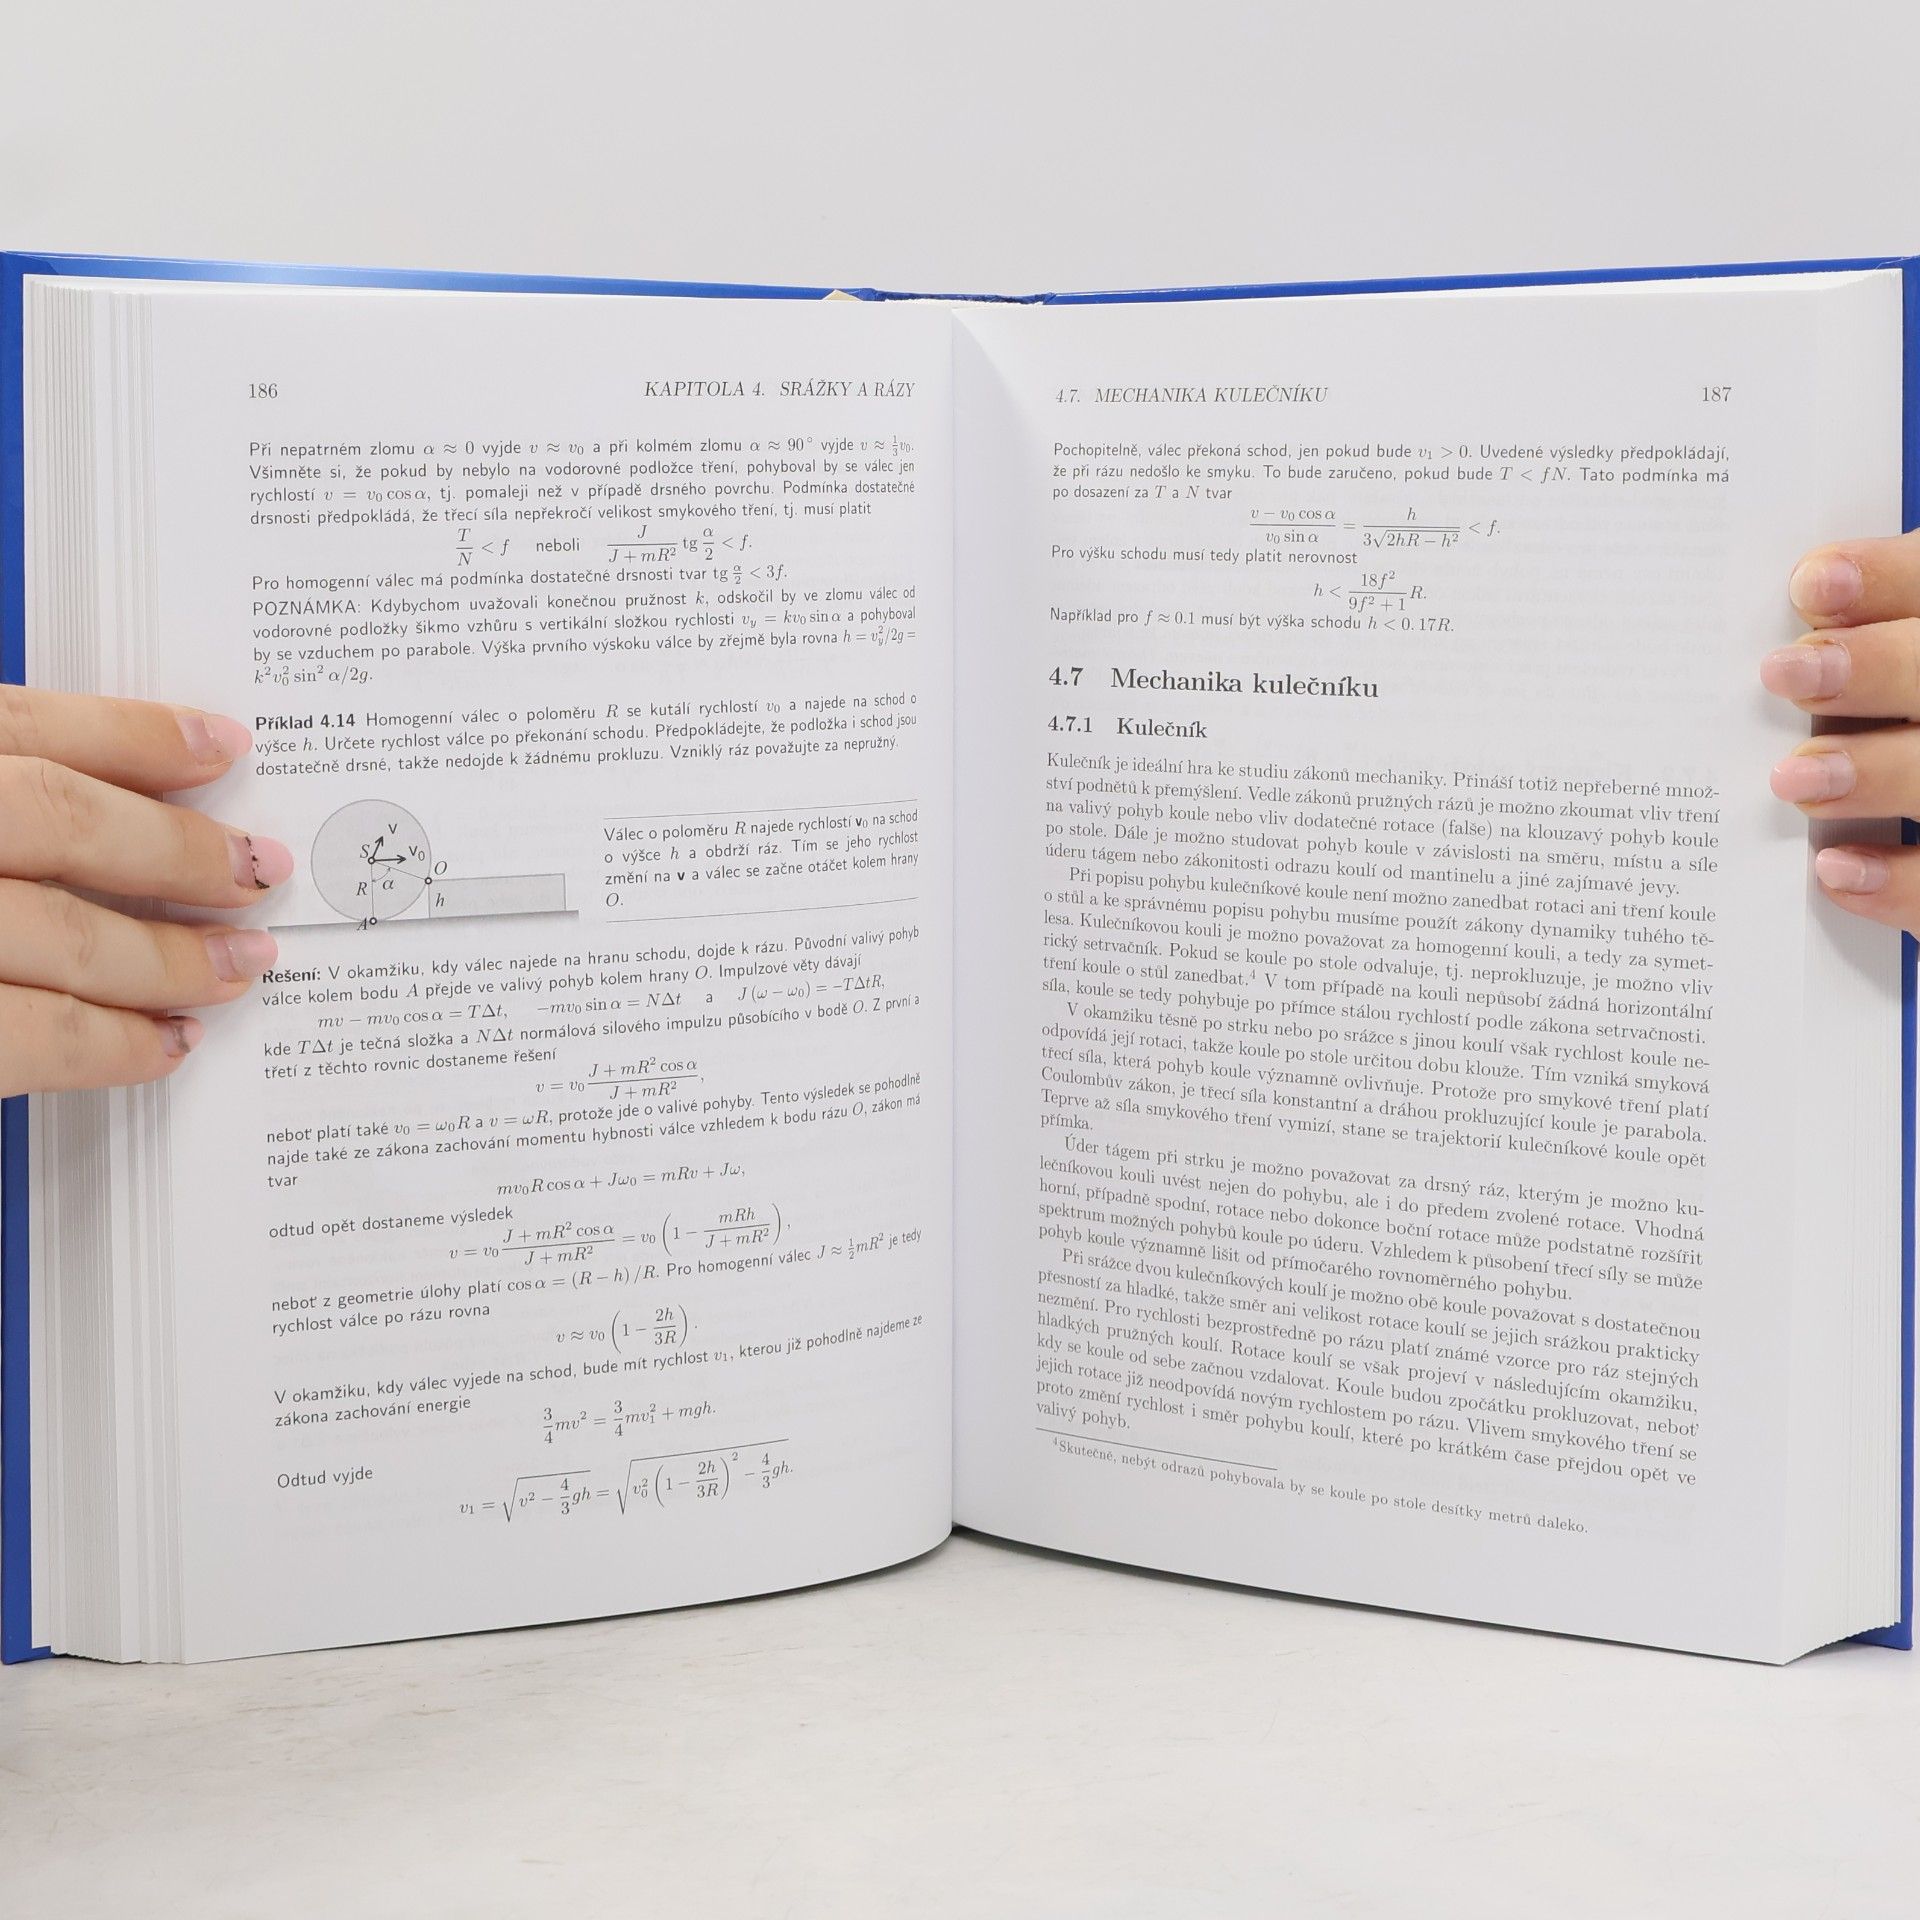 186 KAPITOLA 4. SRÁŽKY A RÁZY
Při nepatrném zlomu α ≈ 0 vyjde v ≈ v₀ a při kolmém zlomu α ≈ 90° vyjde v ≈ ⅓v₀.
Všimněte si, že pokud by nebylo na vodorovné podložce tření, pohyboval by se válec jen
rychlostí v = v₀ cos α, tj. pomaleji než v případě drsného povrchu. Podmínka dostatečné
drsnosti předpokládá, že třecí síla nepřekročí velikost smykového tření, tj. musí platit
T/N < f neboli J/(J + mR²) tg α/2 < f.
Pro homogenní válec má podmínka dostatečné drsnosti tvar tg α/2 < 3f.
POZNÁMKA: Kdybychom uvažovali konečnou pružnost k, odskočil by ve zlomu válec od
vodorovné podložky šikmo vzhůru s vertikální složkou rychlosti v_y = kv₀ sin α a pohyboval
by se vzduchem po parabole. Výška prvního výskoku válce by zřejmě byla rovna h = v_y²/2g =
k²v₀² sin² α/2g.
Příklad 4.14 Homogenní válec o poloměru R se kutálí rychlostí v₀ a najede na schod o
výšce h. Určete rychlost válce po překonání schodu. Předpokládejte, že podložka i schod jsou
dostatečně drsné, takže nedojde k žádnému prokluzu. Vzniklý ráz považujte za nepružný.
v
S v₀
R α O
h
A
Válec o poloměru R najede rychlostí v₀ na schod
o výšce h a obdrží ráz. Tím se jeho rychlost
změní na v a válec se začne otáčet kolem hrany
O.
Řešení: V okamžiku, kdy válec najede na hranu schodu, dojde k rázu. Původní valivý pohyb
válce kolem bodu A přejde ve valivý pohyb kolem hrany O. Impulzové věty dávají
mv − mv₀ cos α = TΔt, −mv₀ sin α = NΔt a J (ω − ω₀) = −TΔtR,
kde TΔt je tečná složka a NΔt normálová silového impulzu působícího v bodě O. Z první a
třetí z těchto rovnic dostaneme řešení
v = v₀ (J + mR² cos α)/(J + mR²),
neboť platí také v₀ = ω₀R a v = ωR, protože jde o valivé pohyby. Tento výsledek se pohodlně
najde také ze zákona zachování momentu hybnosti válce vzhledem k bodu rázu O, zákon má
tvar
mv₀R cos α + Jω₀ = mRv + Jω,
odtud opět dostaneme výsledek
v = v₀ (J + mR² cos α)/(J + mR²) = v₀ (1 − mRh/(J + mR²)),
neboť z geometrie úlohy platí cos α = (R − h) /R. Pro homogenní válec J ≈ ½mR² je tedy
rychlost válce po rázu rovna
v ≈ v₀ (1 − 2h/3R).
V okamžiku, kdy válec vyjede na schod, bude mít rychlost v₁, kterou již pohodlně najdeme ze
zákona zachování energie
3/4 mv² = 3/4 mv₁² + mgh.
Odtud vyjde
v₁ = √(v² − 4/3 gh) = √(v₀² (1 − 2h/3R)² − 4/3 gh).
4.7. MECHANIKA KULEČNÍKU 187
Pochopitelně, válec překoná schod, jen pokud bude v₁ > 0. Uvedené výsledky předpokládají,
že při rázu nedošlo ke smyku. To bude zaručeno, pokud bude T < fN. Tato podmínka má
po dosazení za T a N tvar
(v − v₀ cos α)/(v₀ sin α) = h/(3√(2hR − h²)) < f.
Pro výšku schodu musí tedy platit nerovnost
h < 18f²/(9f² + 1) R.
Například pro f ≈ 0.1 musí být výška schodu h < 0. 17R.
4.7 Mechanika kulečníku
4.7.1 Kulečník
Kulečník je ideální hra ke studiu zákonů mechaniky. Přináší totiž nepřeberné množ-
ství podnětů k přemýšlení. Vedle zákonů pružných rázů je možno zkoumat vliv tření
na valivý pohyb koule nebo vliv dodatečné rotace (falše) na klouzavý pohyb koule
po stole. Dále je možno studovat pohyb koule v závislosti na směru, místu a síle
úderu tágem nebo zákonitosti odrazu koulí od mantinelu a jiné zajímavé jevy.
Při popisu pohybu kulečníkové koule není možno zanedbat rotaci ani tření koule
o stůl a ke správnému popisu pohybu musíme použít zákony dynamiky tuhého tě-
lesa. Kulečníkovou kouli je možno považovat za homogenní kouli, a tedy za symet-
rický setrvačník. Pokud se koule po stole odvaluje, tj. neprokluzuje, je možno vliv
tření koule o stůl zanedbat.⁴ V tom případě na kouli nepůsobí žádná horizontální
síla, koule se tedy pohybuje po přímce stálou rychlostí podle zákona setrvačnosti.
V okamžiku těsně po strku nebo po srážce s jinou koulí však rychlost koule ne-
odpovídá její rotaci, takže koule po stole určitou dobu klouže. Tím vzniká smyková
třecí síla, která pohyb koule významně ovlivňuje. Protože pro smykové tření platí
Coulombův zákon, je třecí síla konstantní a dráhou prokluzující koule je parabola.
Teprve až síla smykového tření vymizí, stane se trajektorií kulečníkové koule opět
přímka.
Úder tágem při strku je možno považovat za drsný ráz, kterým je možno ku-
lečníkovou kouli uvést nejen do pohybu, ale i do předem zvolené rotace. Vhodná
horní, případně spodní, rotace nebo dokonce boční rotace může podstatně rozšířit
spektrum možných pohybů koule po úderu. Vzhledem k působení třecí síly se může
pohyb koule významně lišit od přímočarého rovnoměrného pohybu.
Při srážce dvou kulečníkových koulí je možno obě koule považovat s dostatečnou
přesností za hladké, takže směr ani velikost rotace koulí se jejich srážkou prakticky
nezmění. Pro rychlosti bezprostředně po rázu platí známé vzorce pro ráz stejných
hladkých pružných koulí. Rotace koulí se však projeví v následujícím okamžiku,
kdy se koule od sebe začnou vzdalovat. Koule budou zpočátku prokluzovat, neboť
jejich rotace již neodpovídá novým rychlostem po rázu. Vlivem smykového tření se
proto změní rychlost i směr pohybu koulí, které po krátkém čase přejdou opět ve
valivý pohyb.
⁴Skutečně, nebýt odrazů pohybovala by se koule po stole desítky metrů daleko.